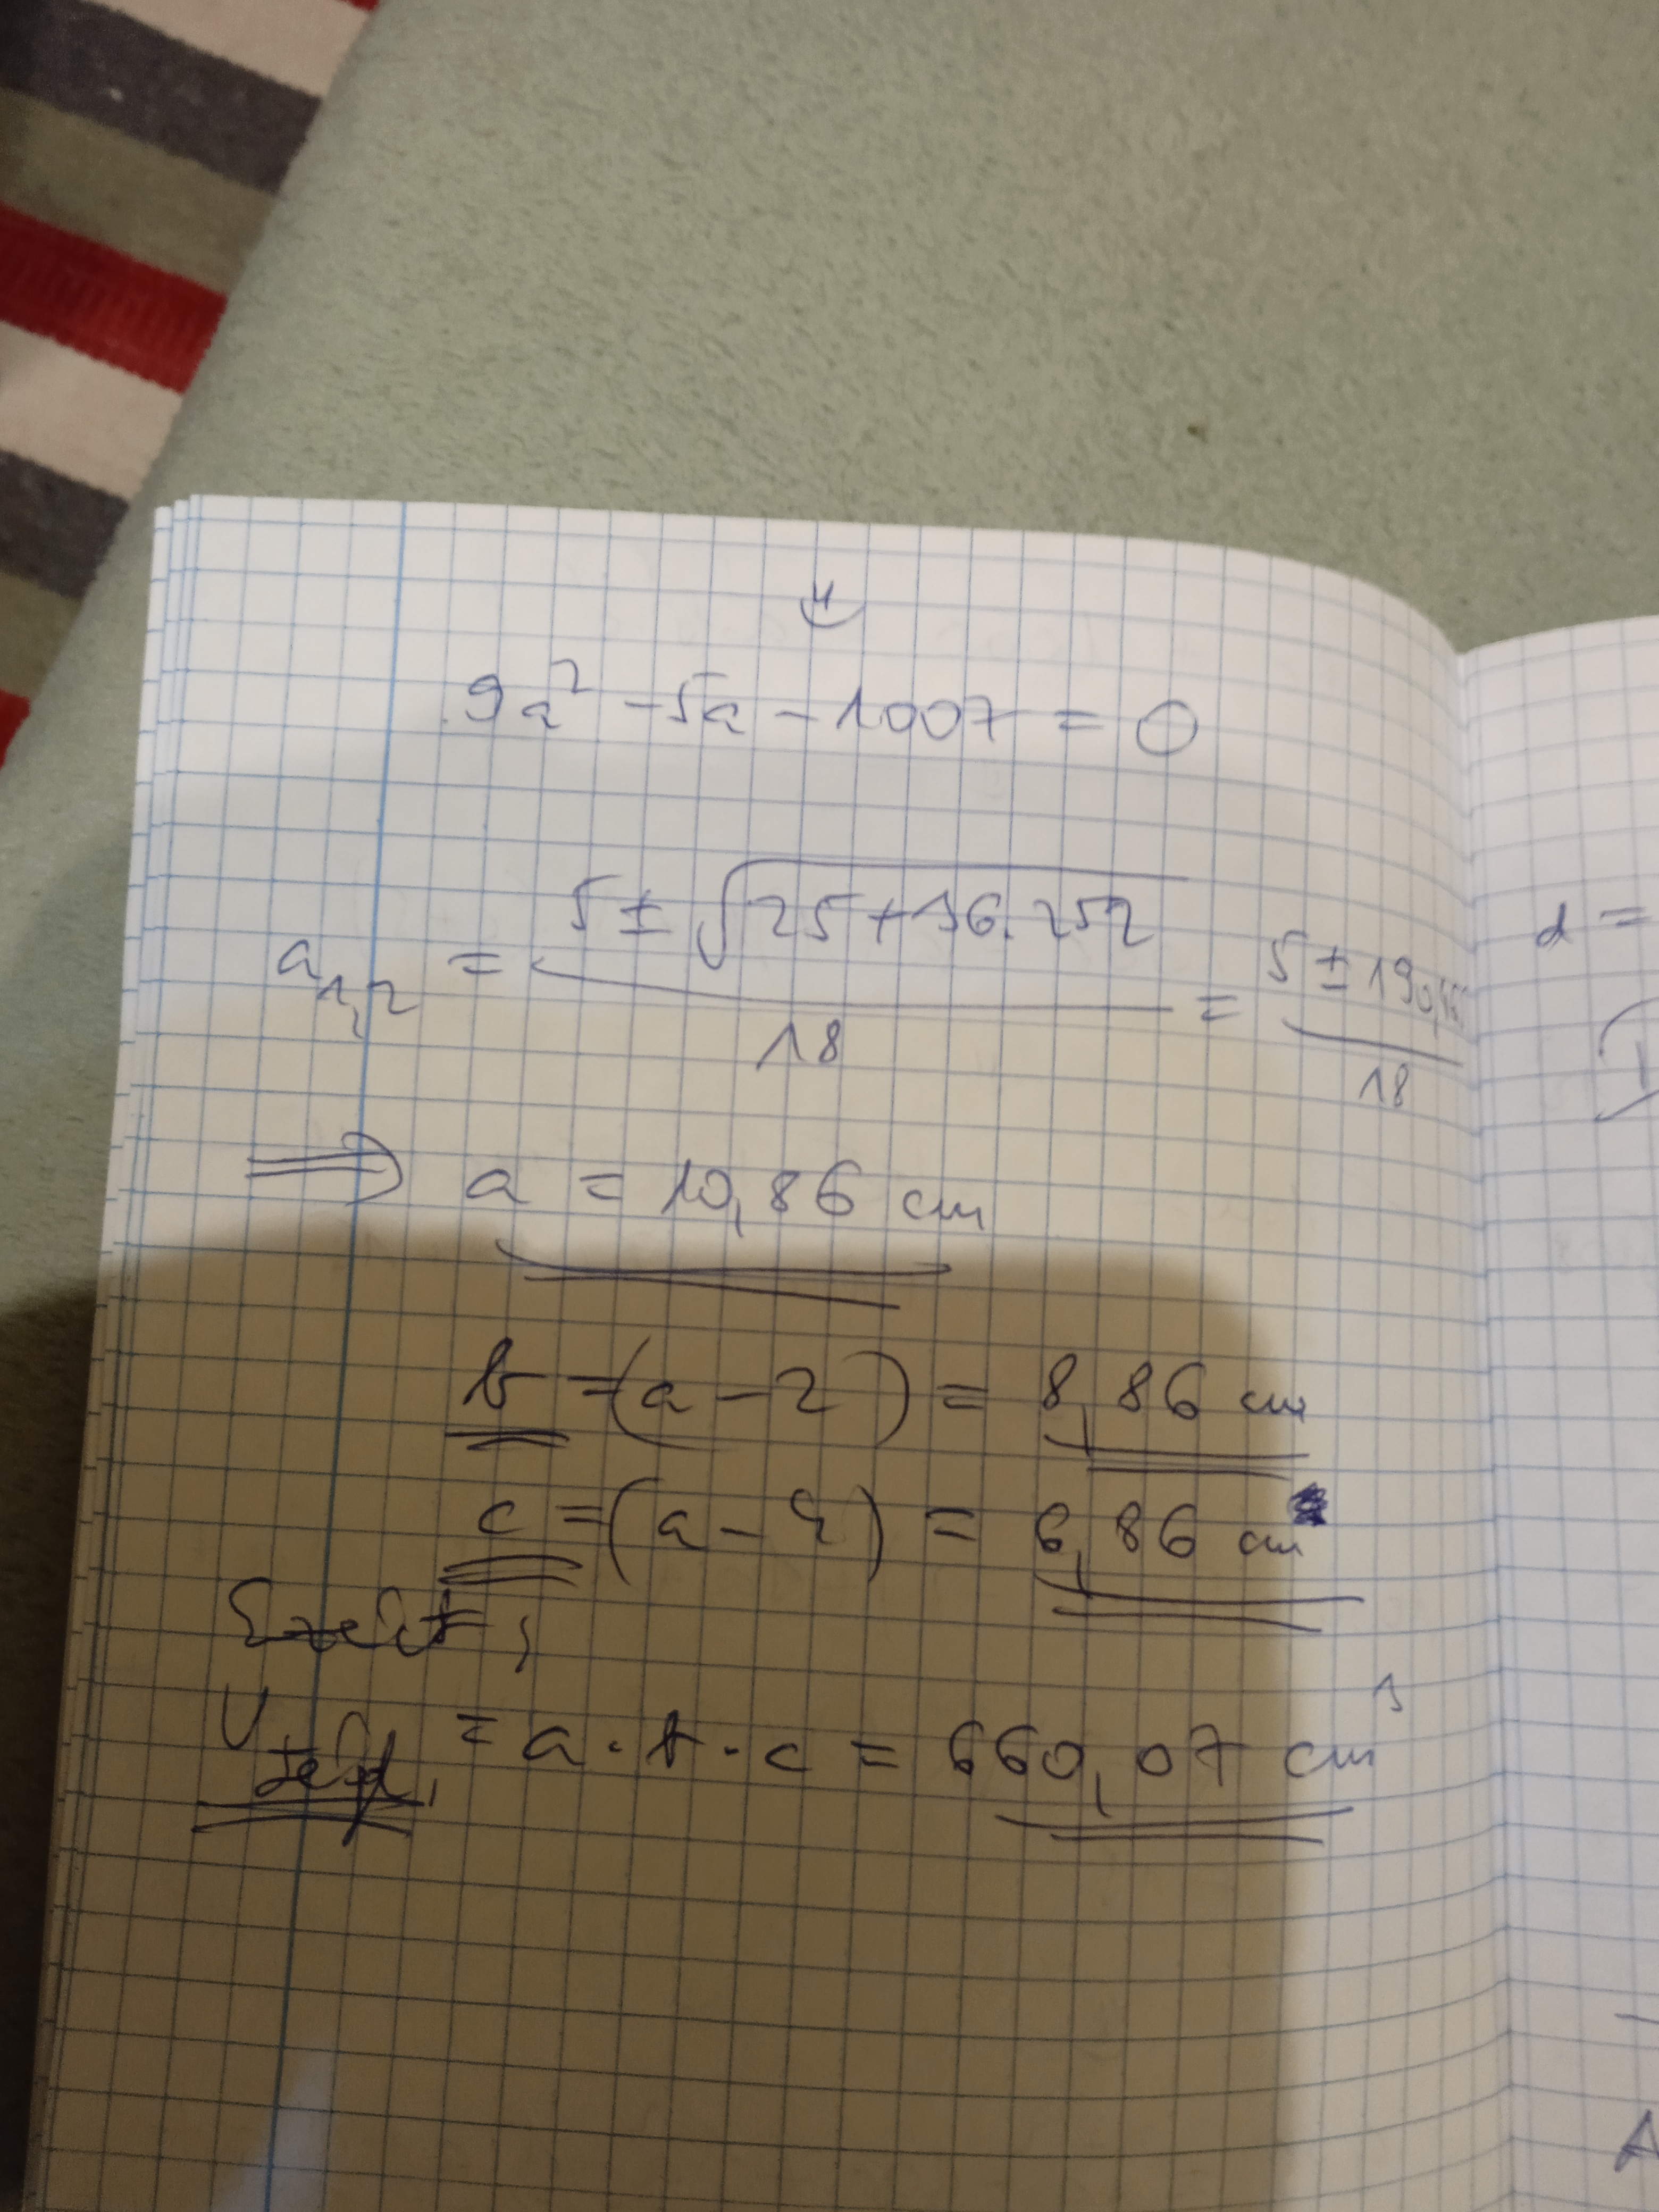 9a² - 5a - 1007 = 0
a₁,₂ = (5 ± √(25 + 36.252)) / 18 = (5 ± 190, / 18
⟹ a = 10,86 cm
b = (a - 2) = 8,86 cm
c = (a - 4) = 6,86 cm
Ezért,
V = a · b · c = 660,07 cm³
d =
A